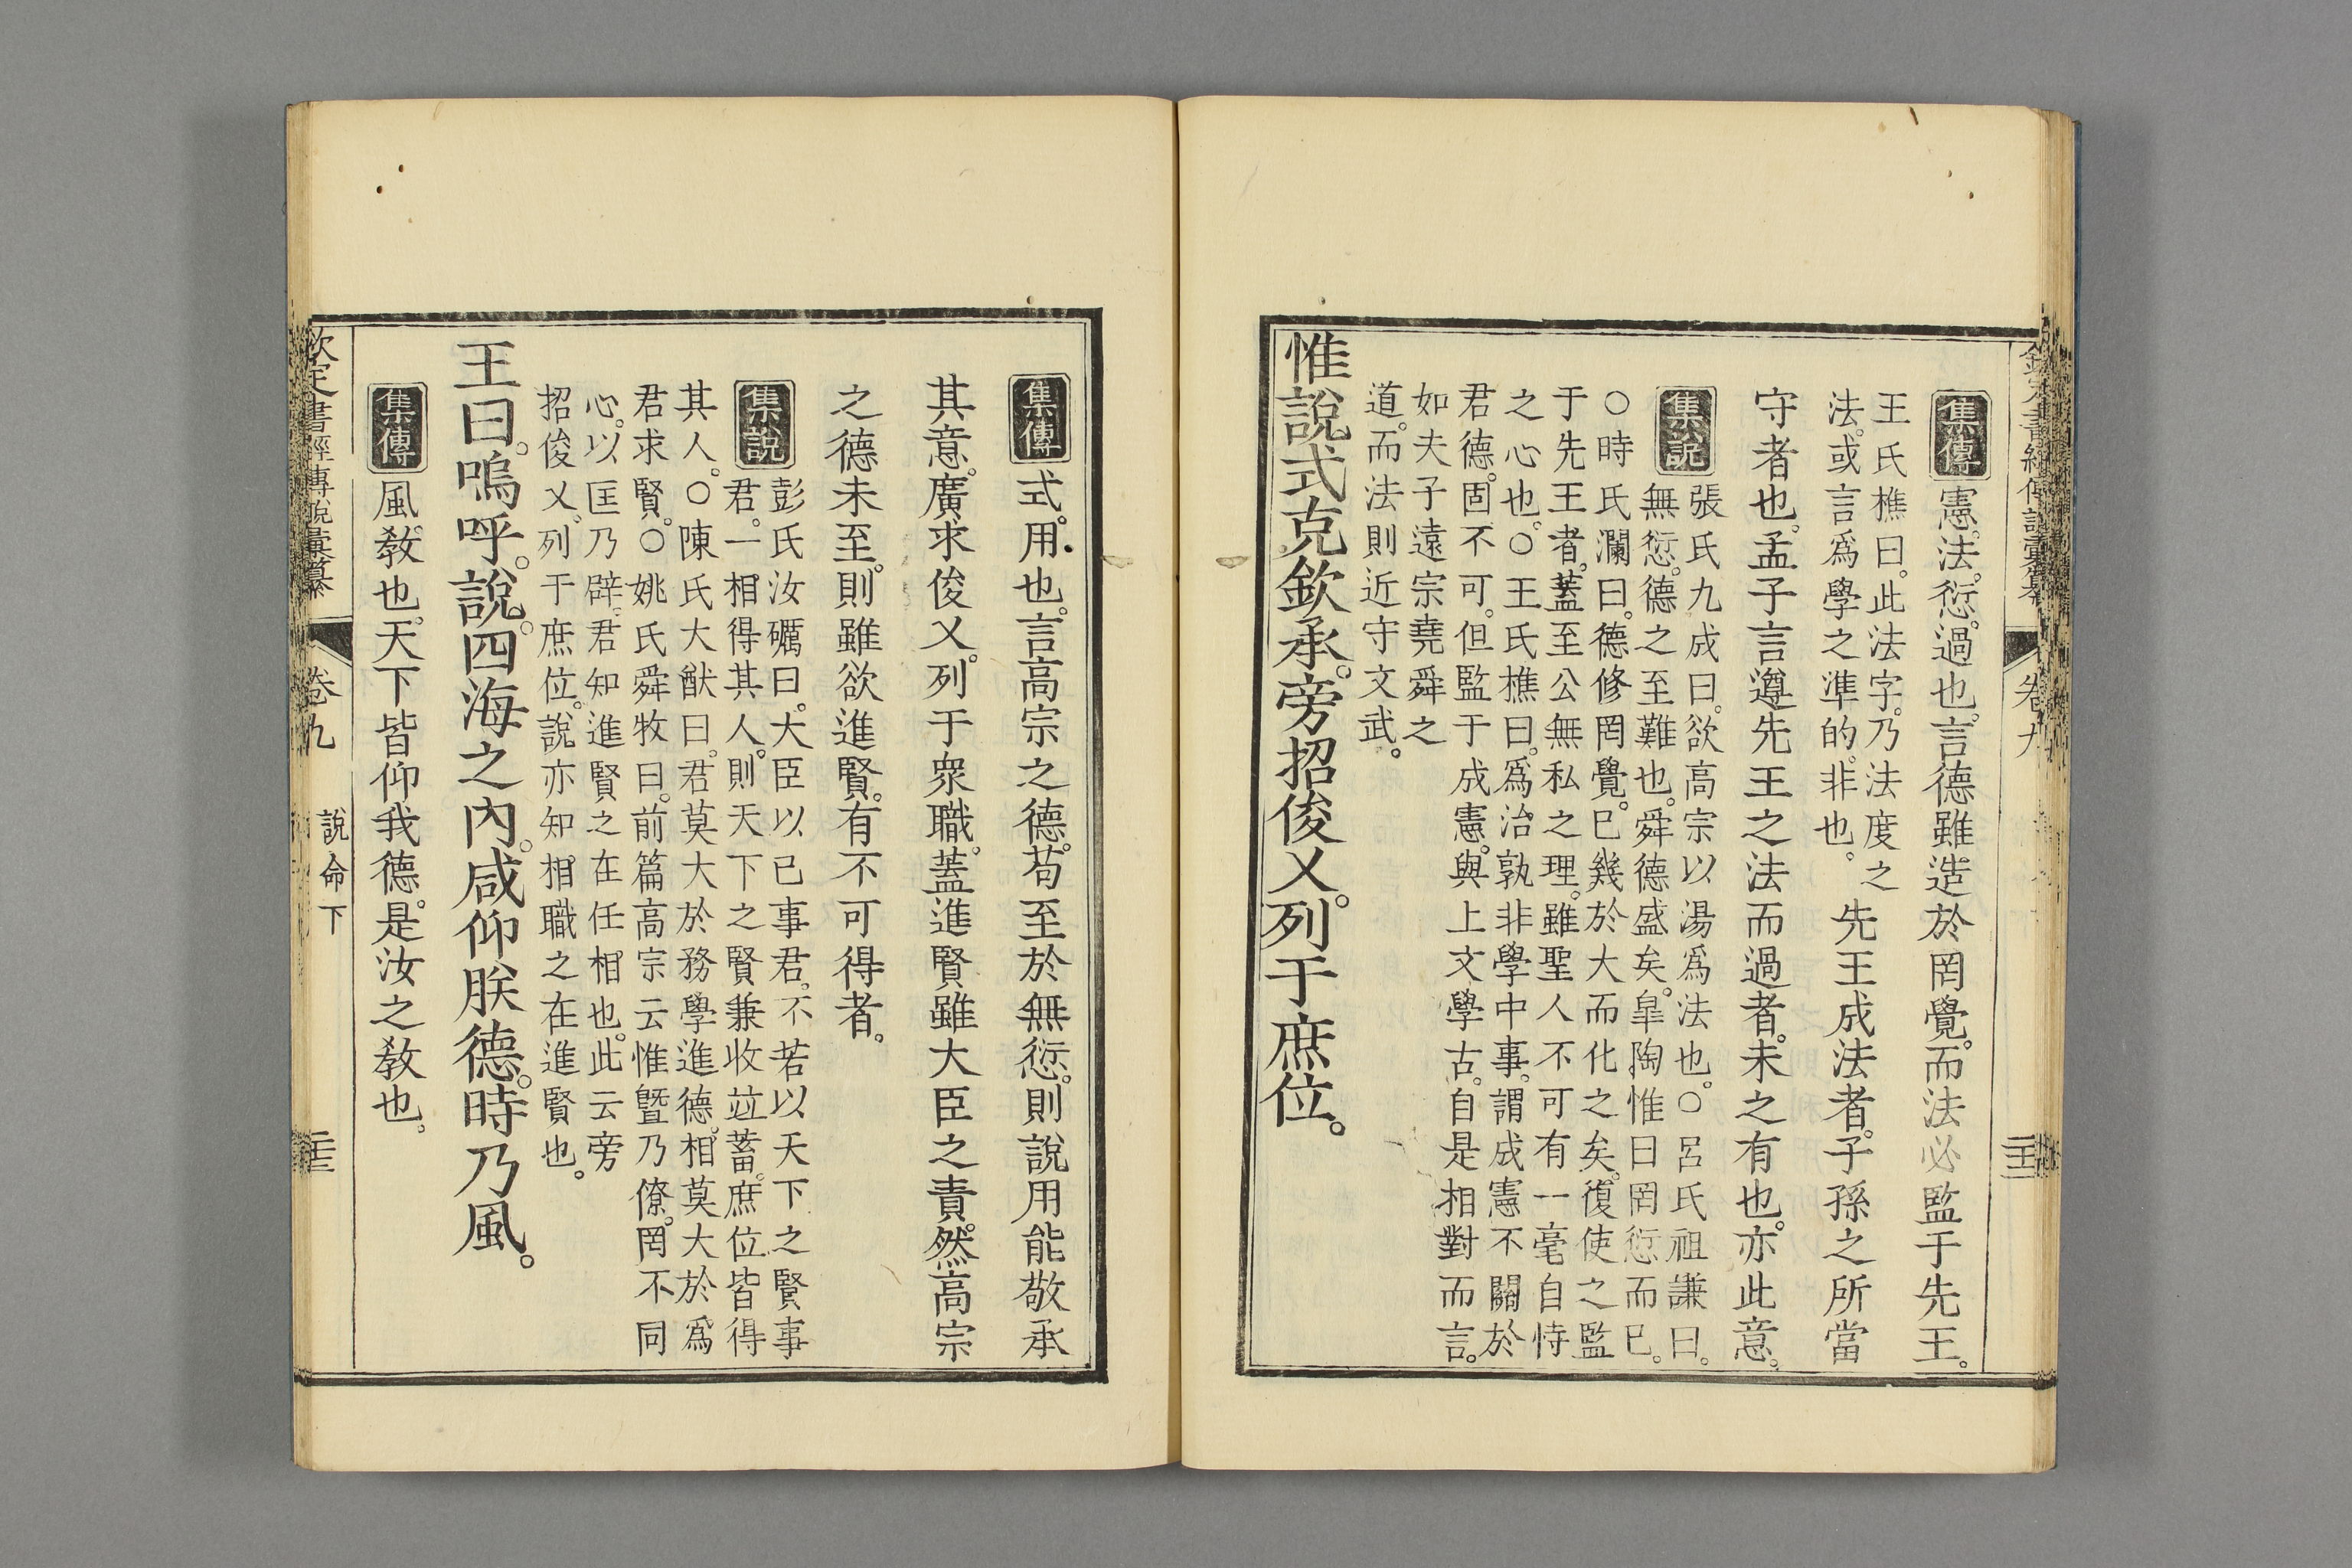 欽定書經傳說彙纂 卷九
集傳 憲。法。愆。過也。言德雖造於罔覺。而法必監于先王。
王氏樵曰。此法字。乃法度之
法。或言爲學之準的。非也。
先王成法者。子孫之所當
守者也。孟子言遵先王之法而過者。未之有也。亦此意。
集說 張氏九成曰。欲高宗以湯爲法也。○呂氏祖謙曰。
無愆。德之至難也。舜德盛矣。皐陶惟曰罔愆而已。
○時氏瀾曰。德修罔覺。已幾於大而化之矣。復使之監
于先王者。蓋至公無私之理。雖聖人不可有一毫自恃
之心也。○王氏樵曰。爲治孰非學中事。謂成憲不關於
君德。固不可。但監于成憲。與上文學古。自是相對而言。
如夫子遠宗堯舜之
道。而法則近守文武。
惟說式克欽承。旁招俊乂。列于庶位。
集傳 式。用也。言高宗之德。苟至於無愆。則說用能敬承
其意。廣求俊乂。列于衆職。蓋進賢雖大臣之責。然高宗
之德未至。則雖欲進賢。有不可得者。
集說 彭氏汝礪曰。大臣以已事君。不若以天下之賢事
君。一相得其人。則天下之賢兼收竝蓄。庶位皆得
其人。○陳氏大猷曰。君莫大於務學進德。相莫大於爲
君求賢。○姚氏舜牧曰。前篇高宗云惟曁乃僚。罔不同
心。以匡乃辟。君知進賢之在任相也。此云旁
招俊乂。列于庶位。說亦知相職之在進賢也。
王曰。嗚呼。說。四海之內。咸仰朕德。時乃風。
集傳 風。敎也。天下皆仰我德。是汝之敎也。
欽定書經傳說彙纂 卷九 說命下